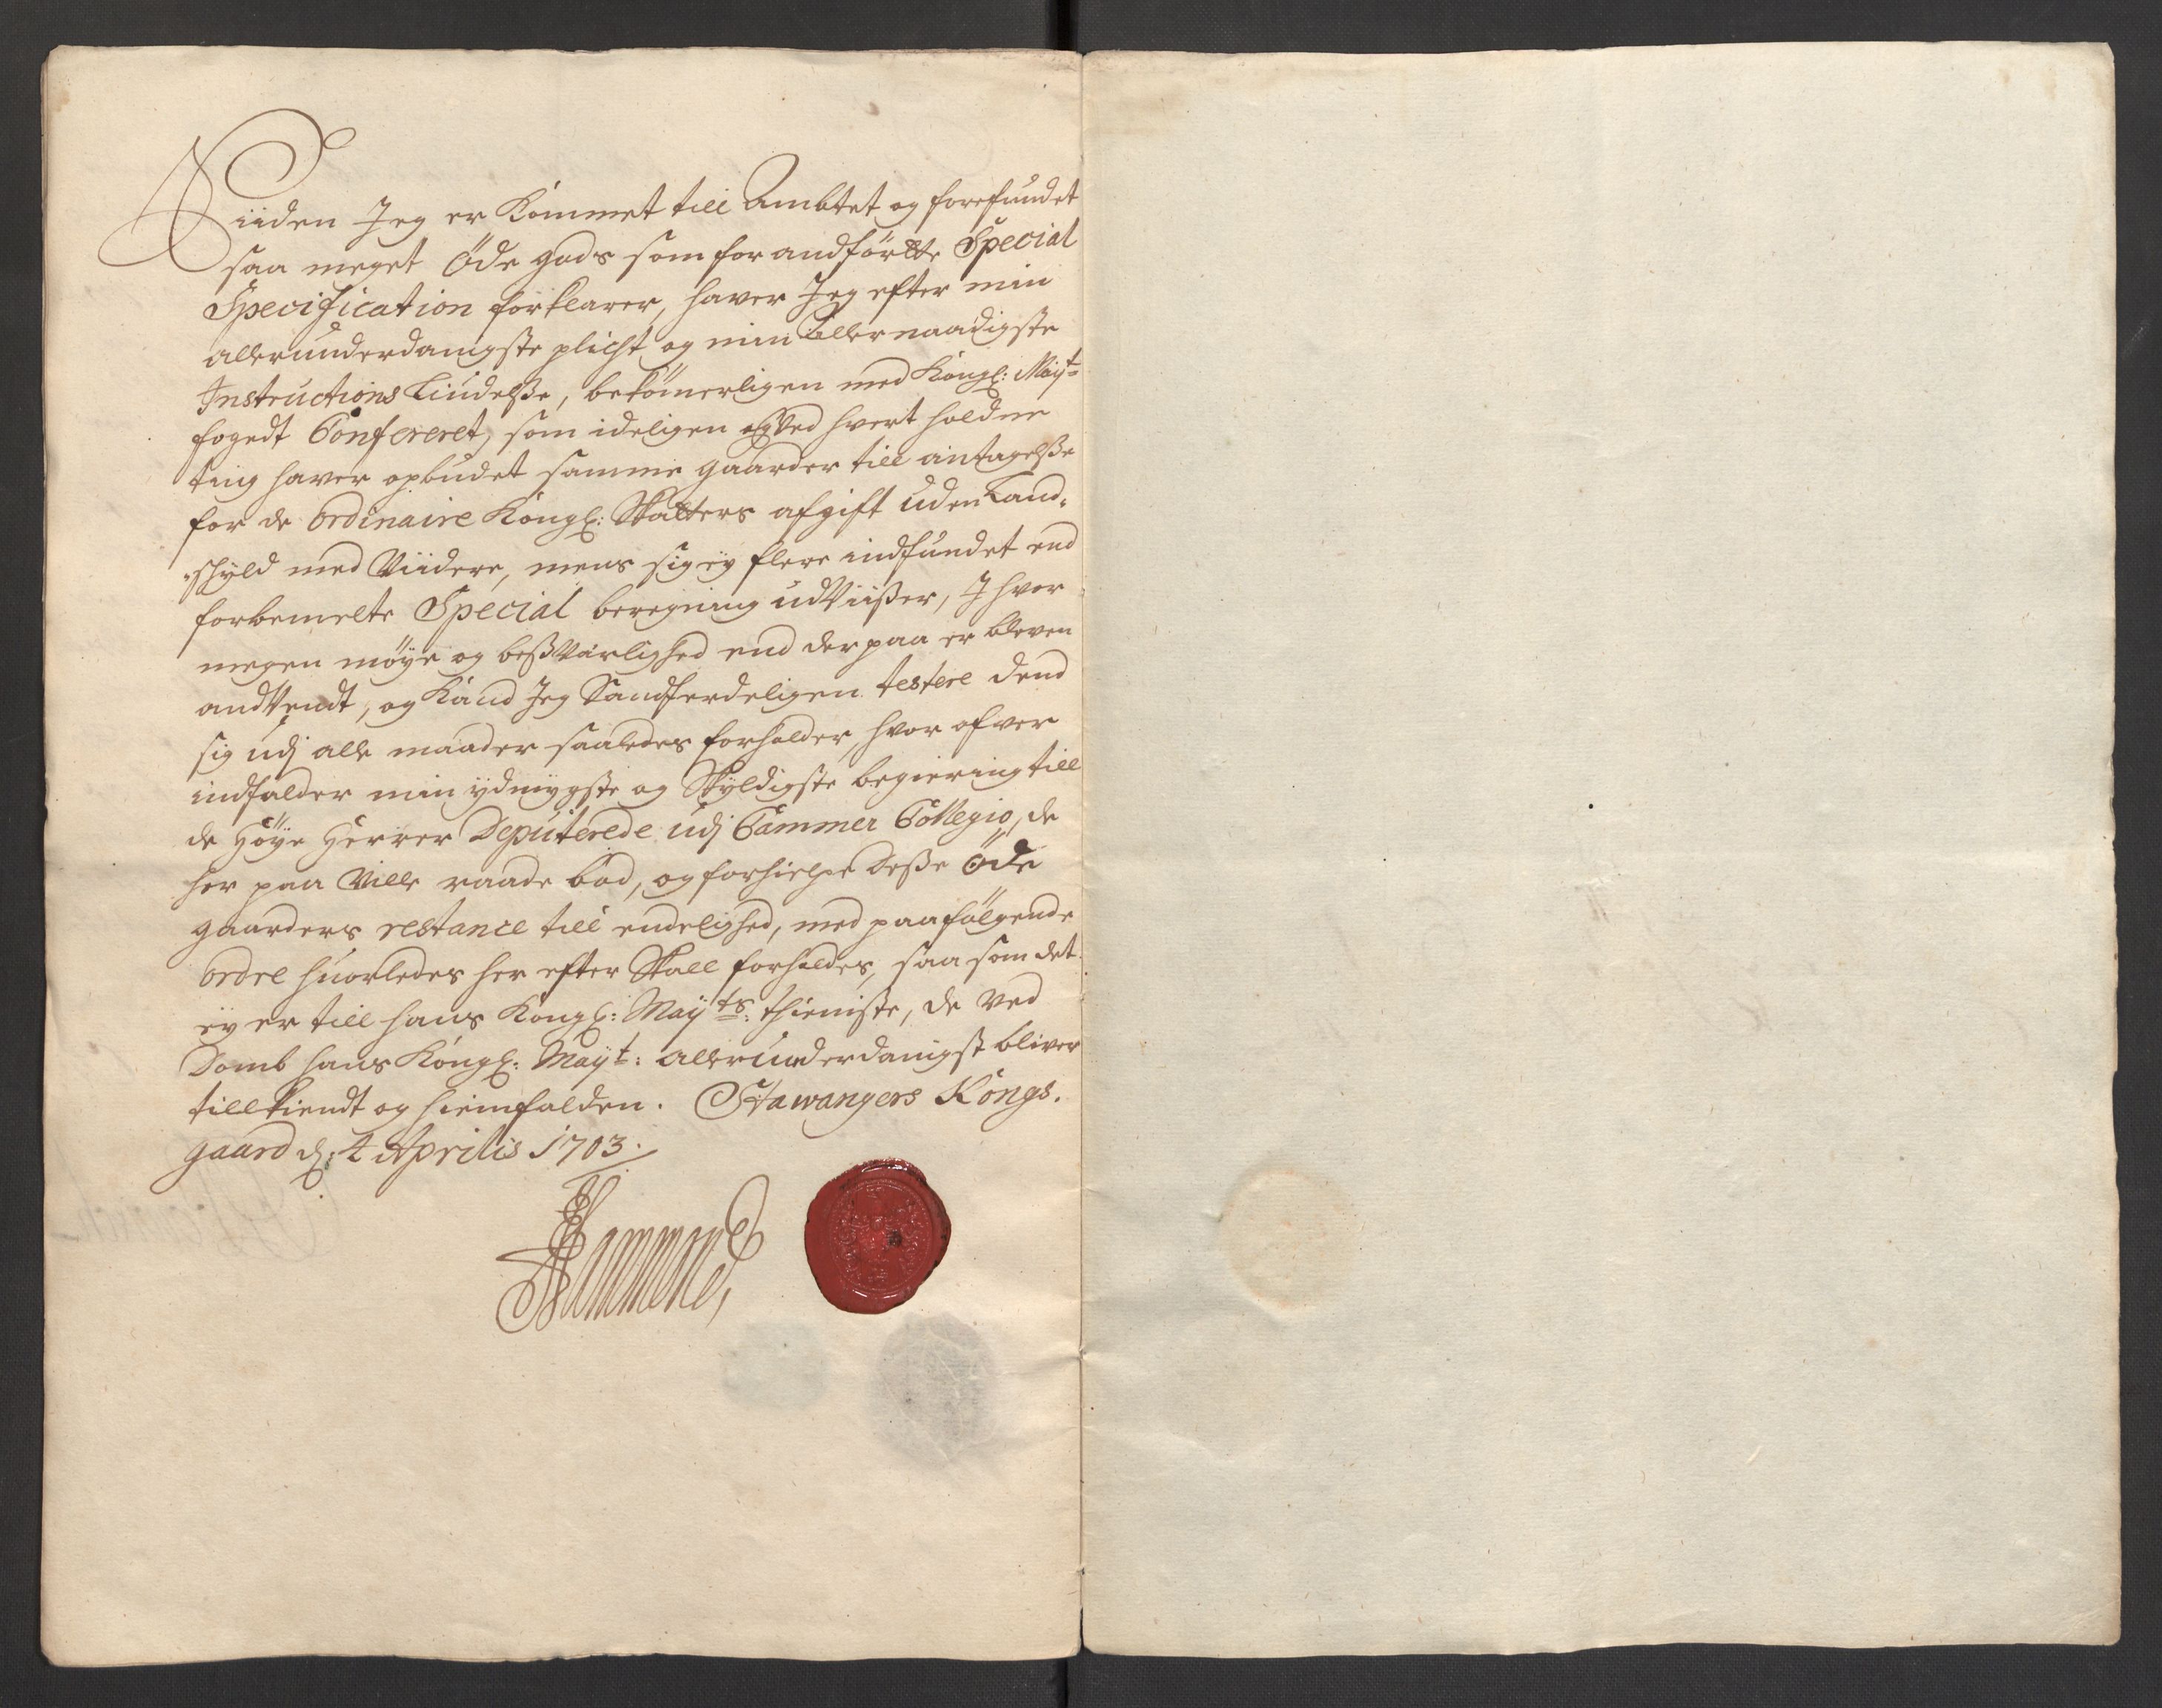 Siiden Jeg er Kommet till Ambtet og forefundet
saa meget Öde gods som for andförte Special
Specification forklarer, haver Jeg efter min
allerunderdanigste plicht og min Allernaadigste
Instructions liudelße, bekömerligen med Kongl: Mayts
fogedt Confereret, som ideligen og Ved hvert holdne
ting haver opbudet samme gaarder till antagelße
for de Ordinaire Kongl: Skatters afgift uden Land-
schyld med Viidere, mens sig ey flere indfundet end
forbemelte Special beregning udViißer, J hvor
megen möye og beßVærlighed end der paa er bleven
andVendt, og Kand Jeg Sandferdeligen testere dend
sig udj alle maader saaledes forholder, hvor ofver
indfalder min ydmygste og Skyldigste begiering till
de Höye Herrer Deputerede udj Cammer Collegio, de
her paa Ville raade bod, og forhielpe deße Öde
gaarders restance till endelighed, med paafölgende
Ordre huorledes her efter Skall forholdes, saa som det
ey er till hans Kongl: Mayts: thieniste, de Ved
Domb hans Kongl: Mayt: allerunderdanigst bliver
tillkiendt og hiemfalden. Stawangers Kongs.
gaard d: 4 Aprilis 1703.
Hammond